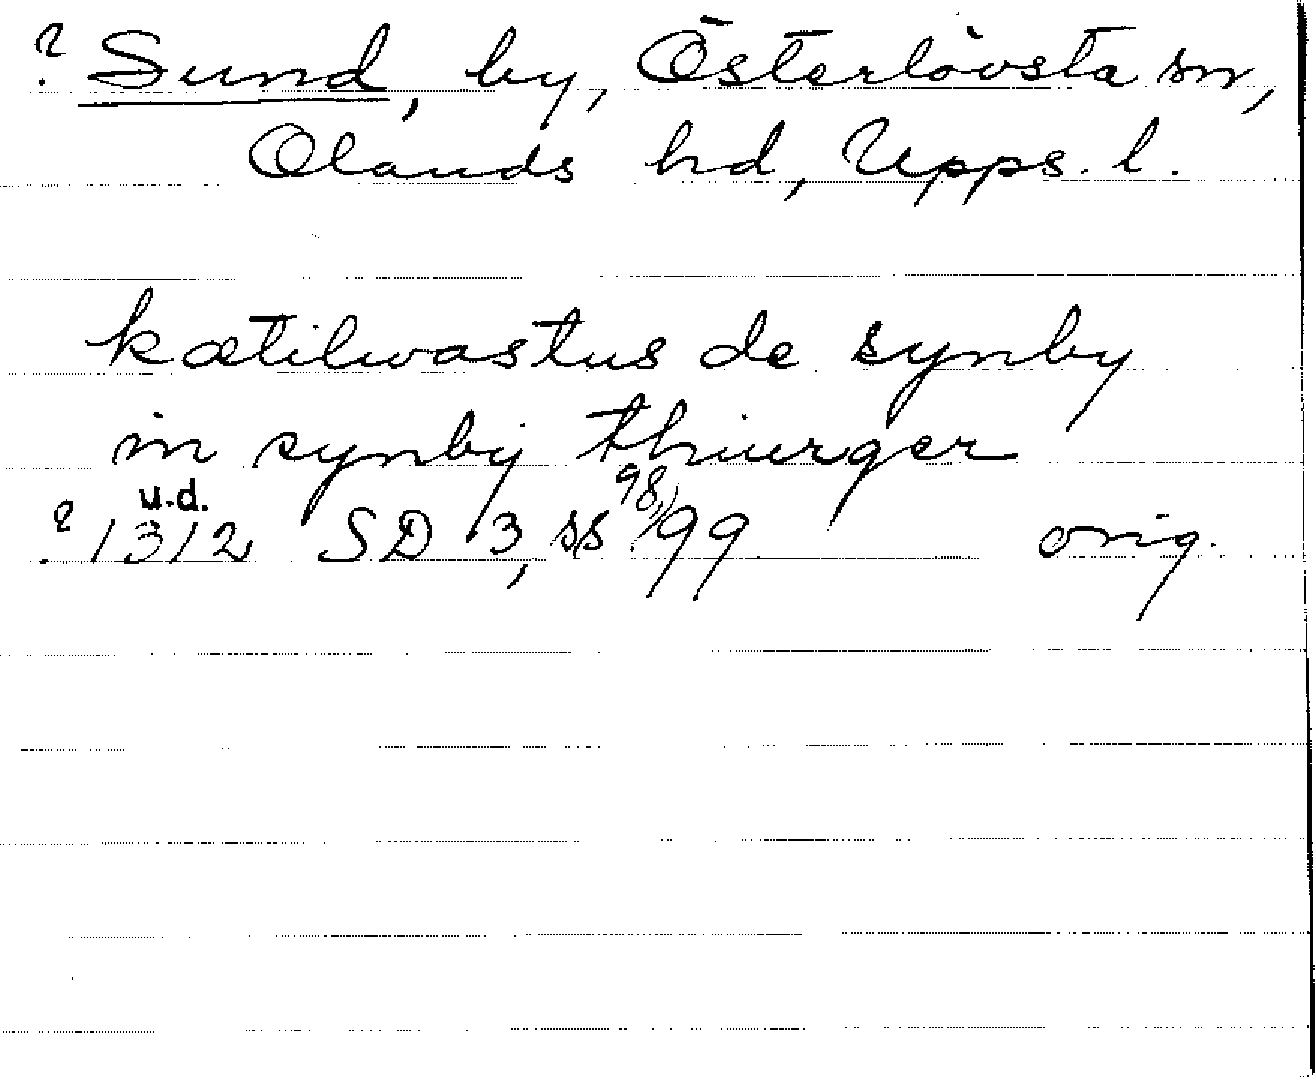 ? Sund, by, Österlövsta sn,
Olands hd, Upps. l.
kætilwastus de synby
in synby thiurger
u.d.
? 1312 SD 3, ss 98, 99 orig.